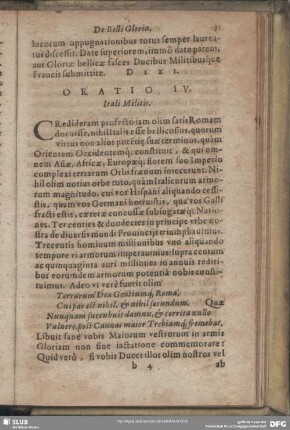 De Belli Gloria.
locorum oppugnationibus totus semper laurea-
tus discessit. Date superiorem, immò date parem,
aut Gloriæ bellicæ fasces Ducibus Militibusque
Francis submittite. DIXI.
ORATIO IV.
Itali Militis.
CRedideram profectò iam olim satis Romam
docuisse, nihil talis esse bellicosius, quorum
virtus non alios potétię suæ terminos, quàm
Orientem Occidentemq; constituit, & qui om-
nem Asiæ, Africæ, Europæq; florem suo Imperio
complexi terrarum Orbi frænum iniecerunt. Ni-
hil olim notius orbe toto, quàm Italicorum armo-
rum magnitudo. cui vos Hispani aliquando cessi-
stis, quàm vos Germani horruistis, qua vos Galli
fracti estis, cæteræ concussæ subiugatæq; Natio-
nes. Ter centies & duodecies in principe vrbe no-
stra de diuersis mundi Prouincijs triumphauimus.
Trecentis hominum millionibus vno aliquando
tempore vi armorum imperauimus supra centum
ac quinquaginta auri milliones in annuis rediti-
bus eorundem armorum potentiâ nobis consti-
tuimus. Adeo vt verè fuerit olim
Terrarum Dea Gentiumq; Roma,
Cui par est nihil, & nihil secundum. Quæ
Nunquam succubuit damnis, & territa nullo
Vulnere, post Cannas maior Trebiamq; fremebat,
Libuit sanè vobis Maiorum vestrorum in armis
Gloriam non sine iactatione commemorare:
Quid verò, si vobis Duces illos olim nostros vel
b 4 ab
SLUB